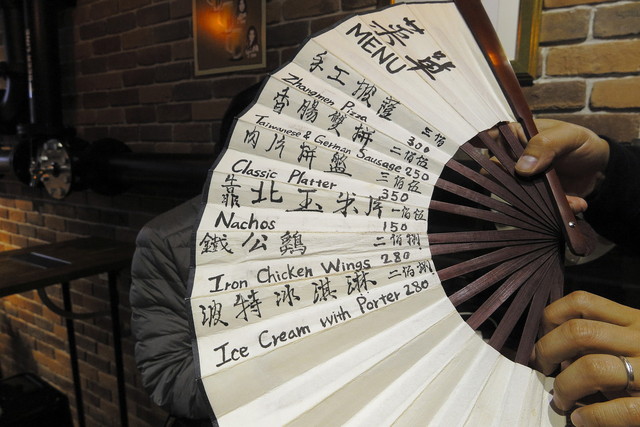 菜單
MENU
手工披薩 三佰
Zhangmen Pizza 300
香腸雙拼 二佰伍
Taiwanese & German Sausage 250
肉片拼盤 三佰伍
Classic Platter 350
靠北玉米片 一佰伍
Nachos 150
鐵公鷄 二佰捌
Iron Chicken Wings 280
波特冰淇淋 二佰捌
Ice Cream with Porter 280